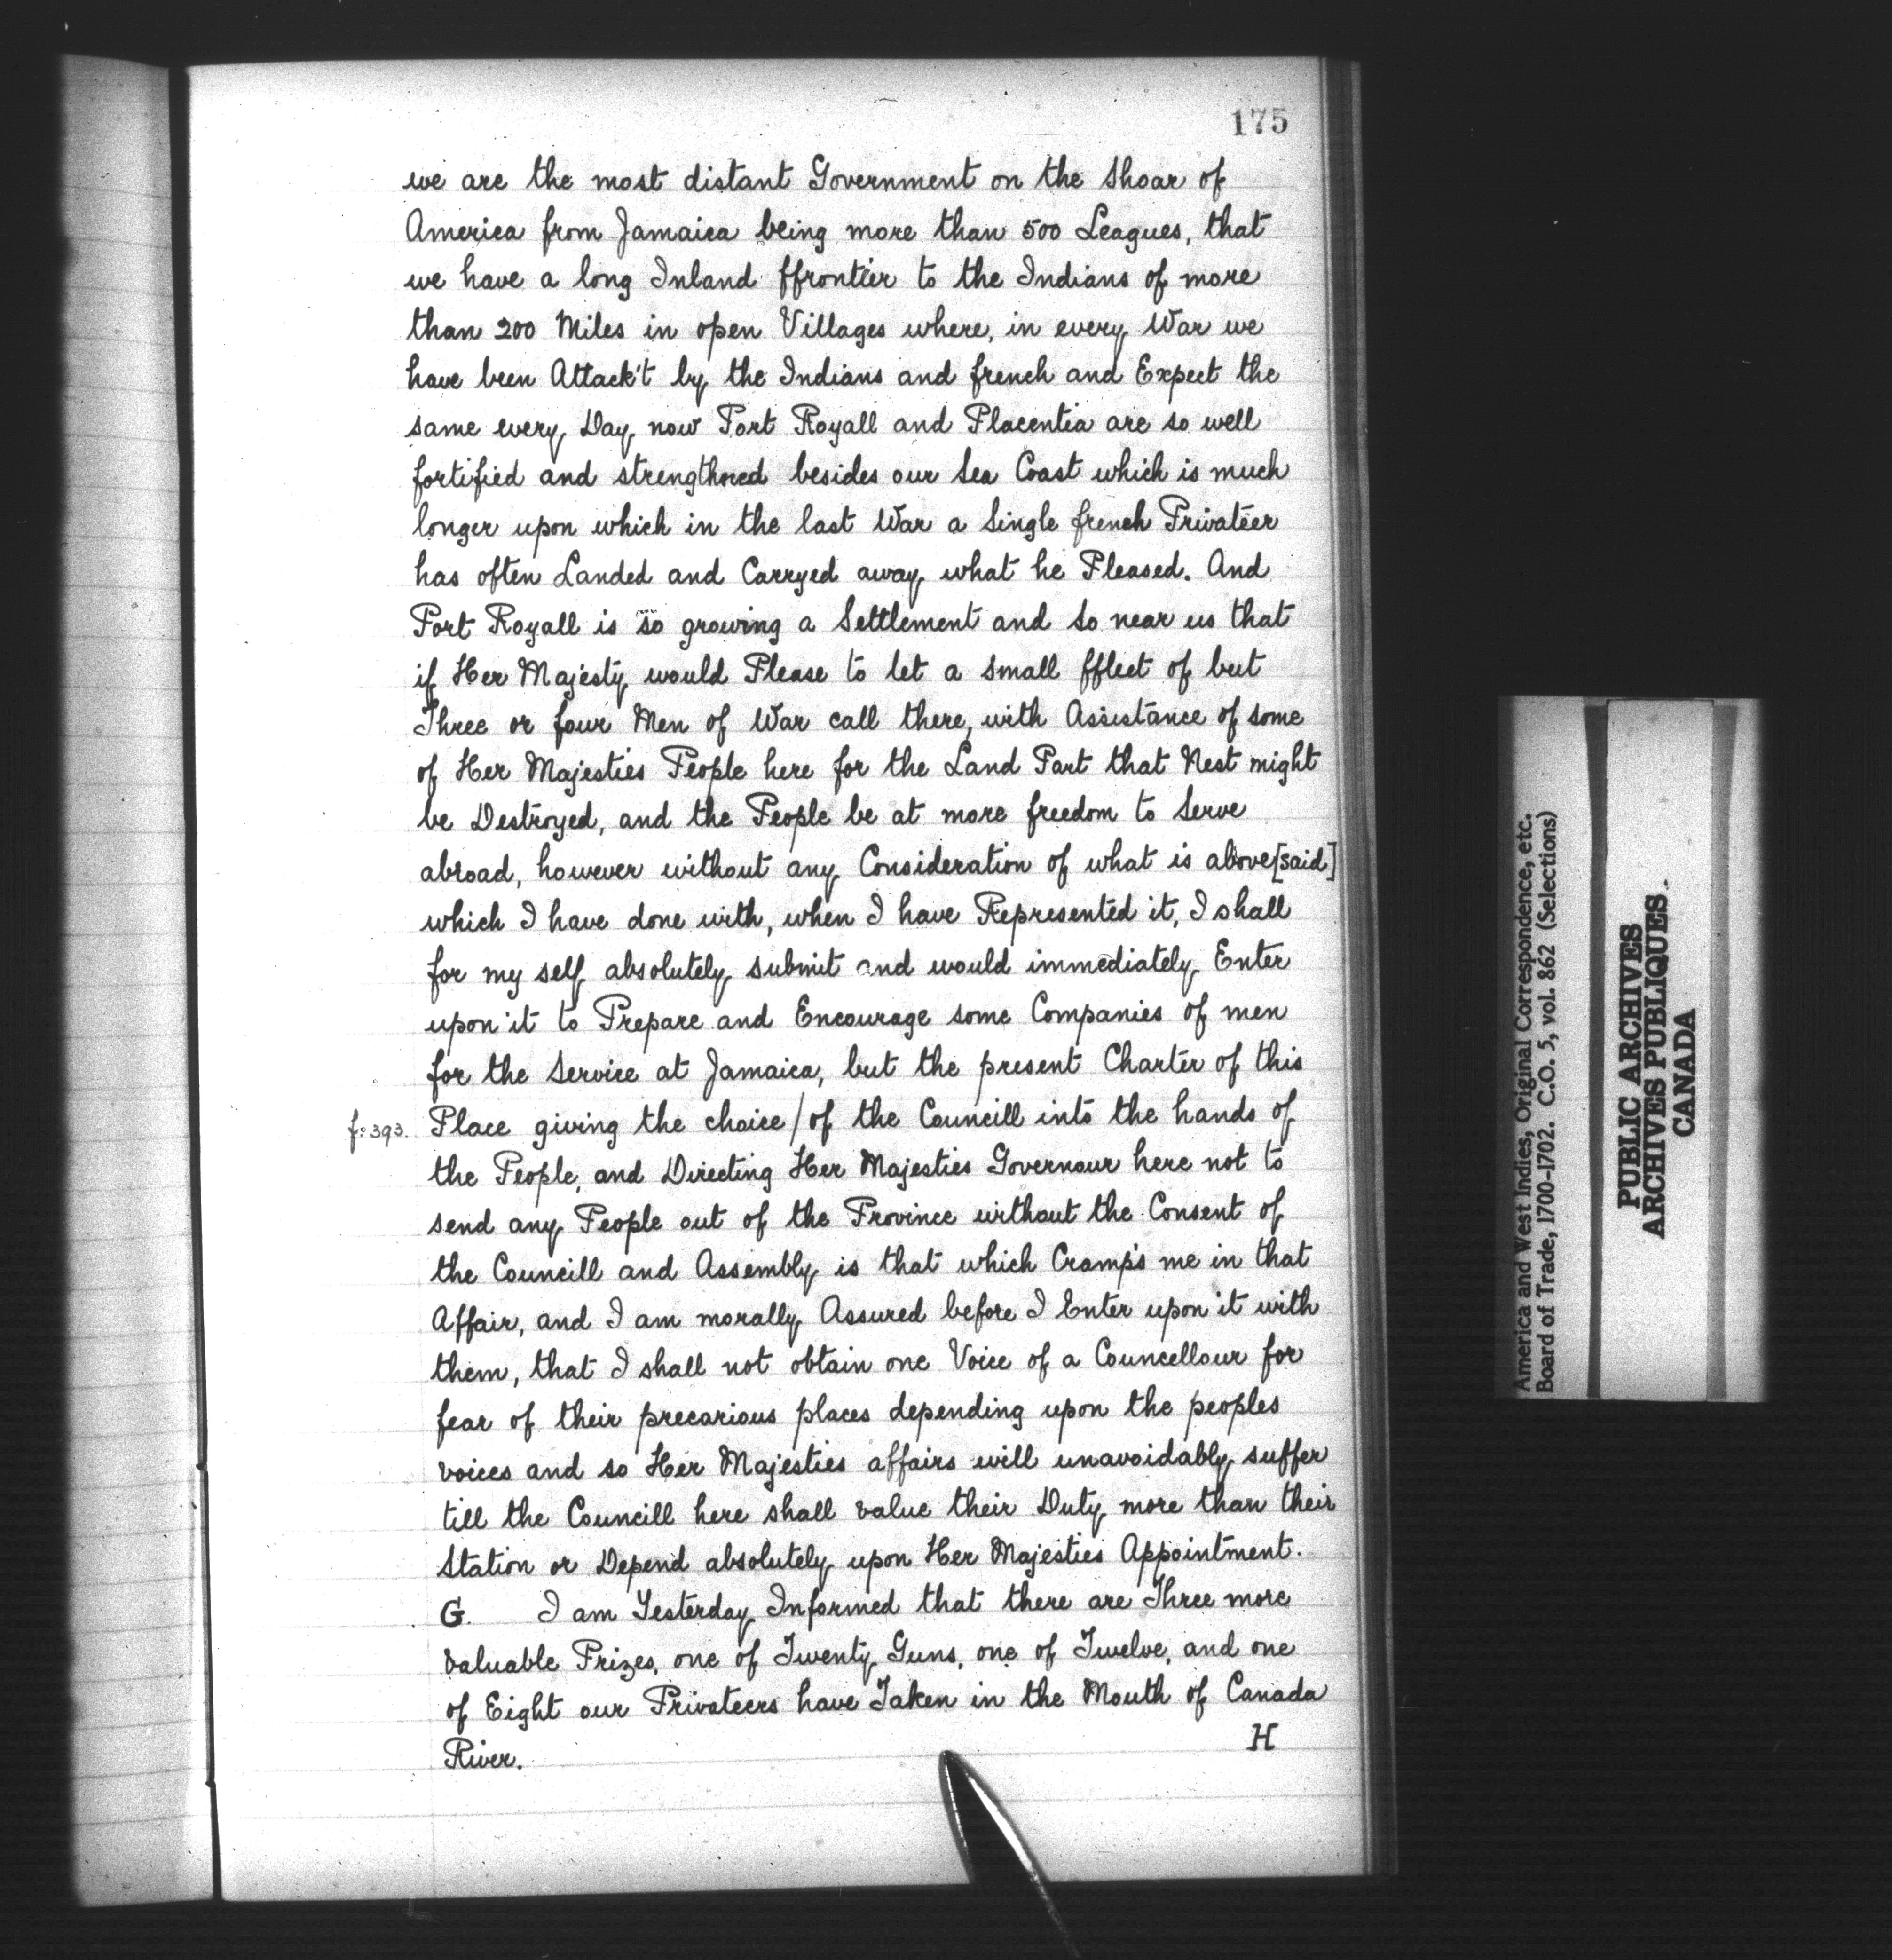 175
we are the most distant Government on the Shoar of
America from Jamaica being more than 500 Leagues, that
we have a long Inland ffrontier to the Indians of more
than 200 Miles in open Villages where, in every War we
have been Attack't by the Indians and french and Expect the
same every Day now Port Royall and Placentia are so well
fortified and strengthned besides our Sea Coast which is much
longer upon which in the last War a Single french Privateer
has often Landed and Carryed away what he Pleased. And
Port Royall is so growing a Settlement and so near us that
if Her Majesty would Please to let a small ffleet of but
Three or four Men of War call there, with Assistance of some
of Her Majesties People here for the Land Part that Nest might
be Destroyed, and the People be at more freedom to Serve
abroad, however without any Consideration of what is above[said]
which I have done with, when I have Represented it, I shall
for my self absolutely submit and would immediately Enter
upon it to Prepare and Encourage some Companies of men
for the Service at Jamaica, but the present Charter of this
f:393. Place giving the choice / of the Councill into the hands of
the People, and Directing Her Majesties Governour here not to
send any People out of the Province without the Consent of
the Councill and Assembly is that which Cramp's me in that
Affair, and I am morally Assured before I Enter upon it with
them, that I shall not obtain one Voice of a Councellour for
fear of their precarious places depending upon the peoples
voices and so Her Majesties affairs will unavoidably suffer
till the Councill here shall value their Duty more than their
Station or Depend absolutely upon Her Majesties Appointment.
G. I am Yesterday Informed that there are Three more
valuable Prizes, one of Twenty Guns, one of Twelve, and one
of Eight our Privateers have Taken in the Mouth of Canada
River.
H
America and West Indies, Original Correspondence, etc.
Board of Trade, 1700-1702. C.O. 5, vol. 862 (Selections)
PUBLIC ARCHIVES
ARCHIVES PUBLIQUES
CANADA